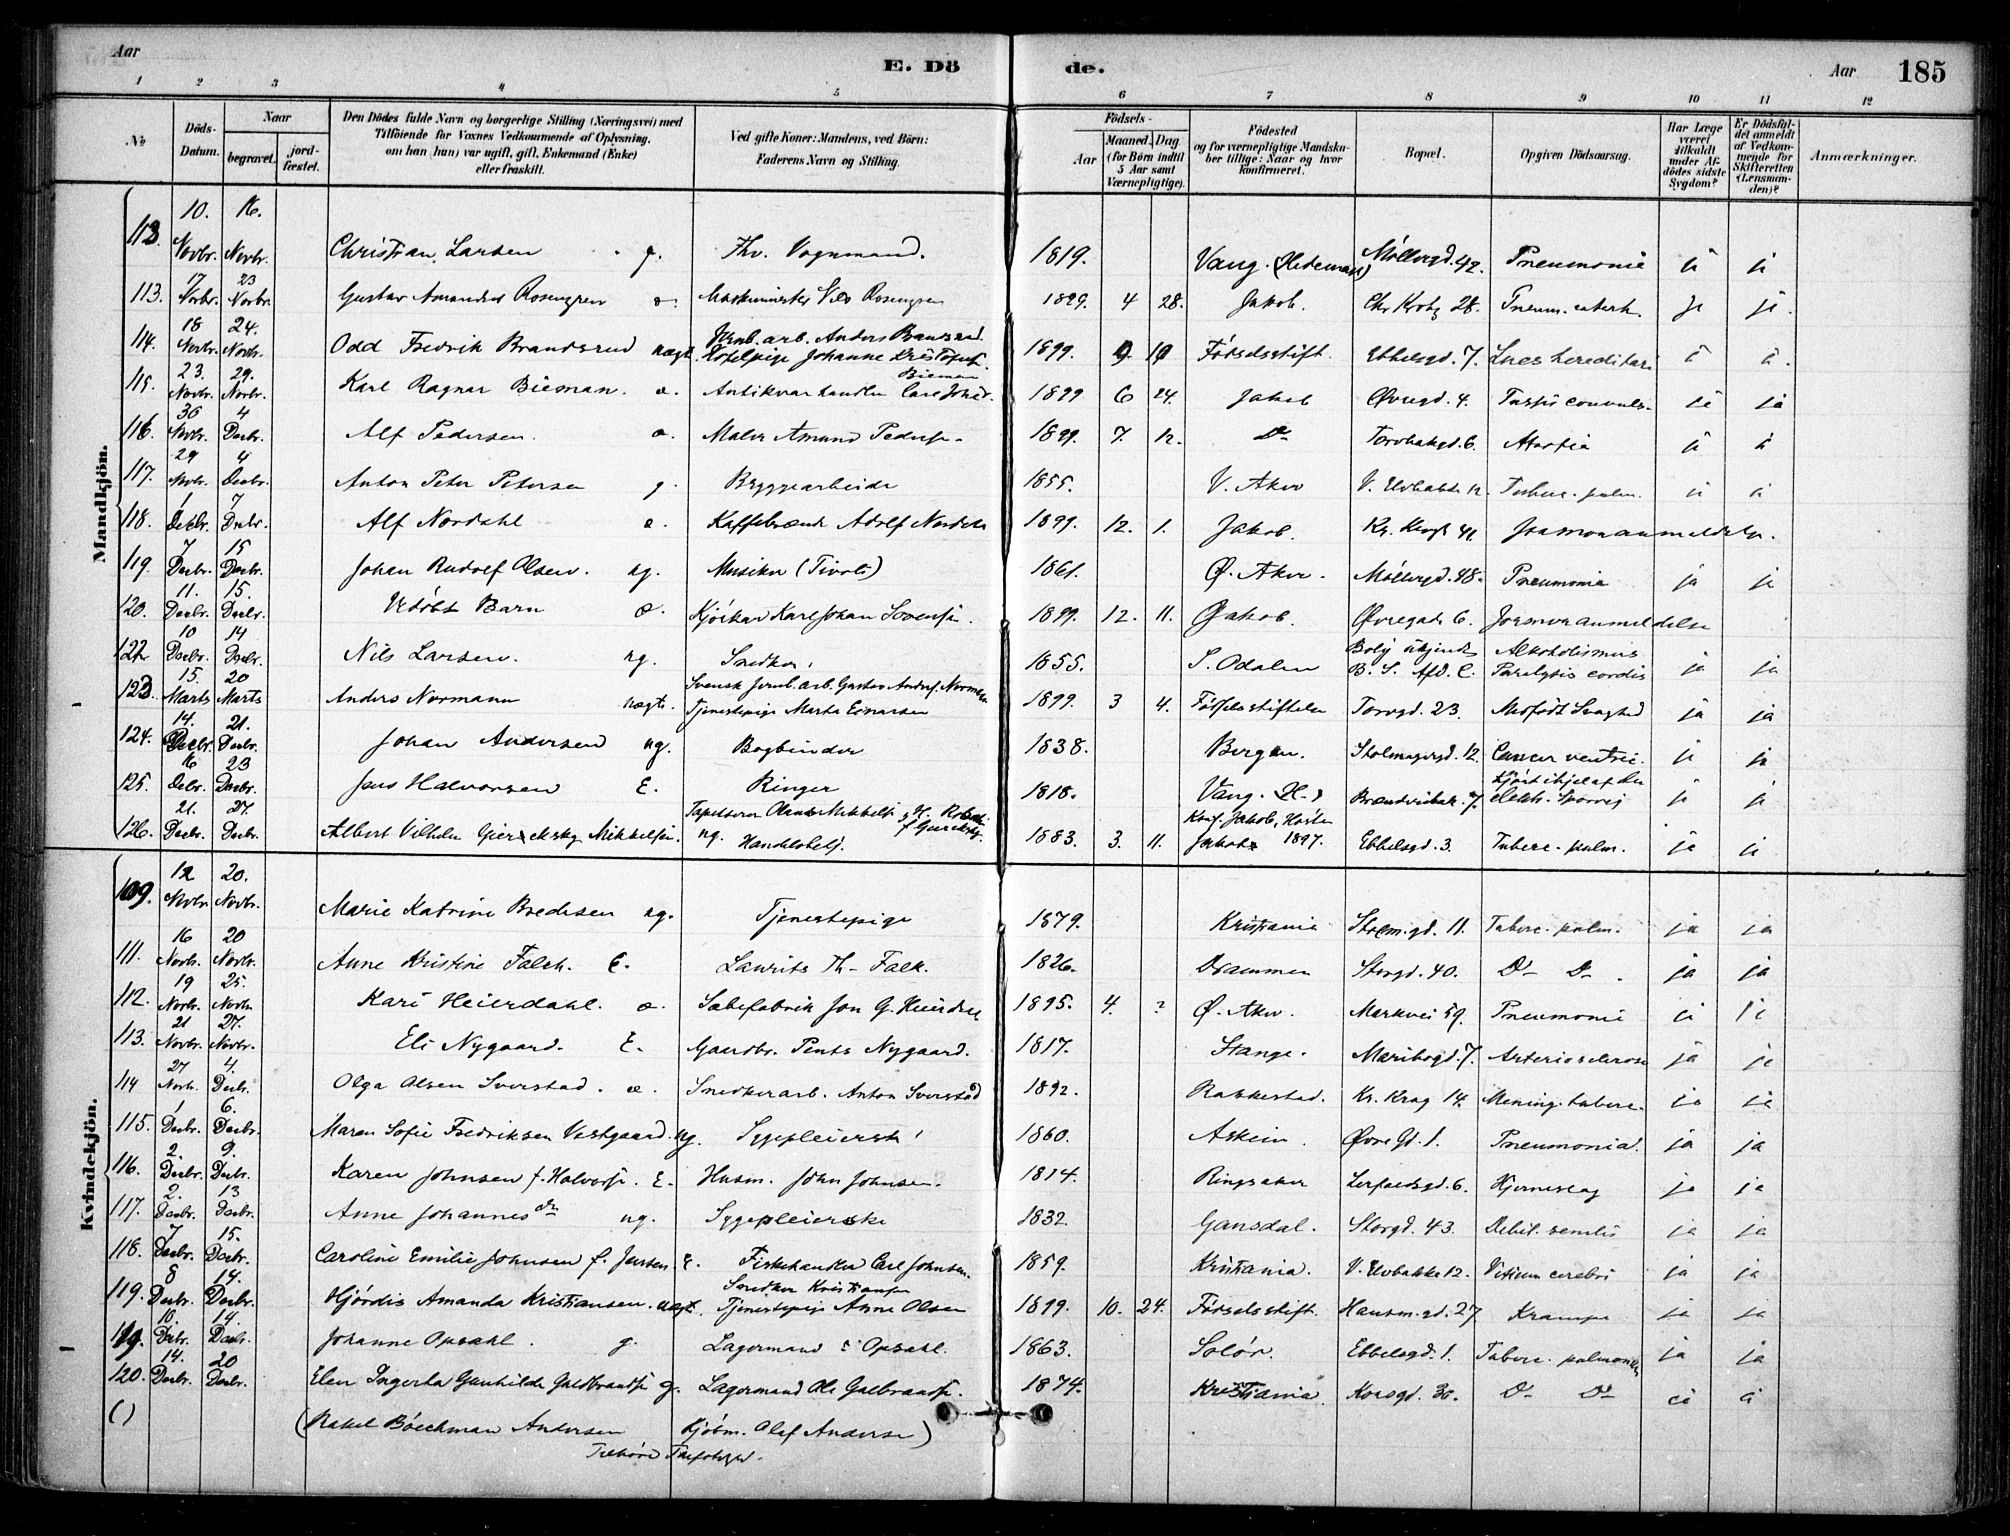 Aar E. Dö de. Aar 185
1 2 3 4 5 6 7 8 9 10 11 12
No Döds-Datum. Naar begravet. jordfæstet. Den Dödes fulde Navn og borgerlige Stilling (Næringsvei) med Tilföiende for Voxnes Vedkommende af Oplysning, om han (hun) var ugift, gift, Enkemand (Enke) eller fraskilt. Ved gifte Koner: Mandens, ved Börn: Faderens Navn og Stilling. Födsels- Aar Maaned Dag (for Börn indtil 5 Aar samt Værnepligtige). Födested og for værnepligtige Mandskaber tillige: Naar og hvor konfirmeret. Bopæl. Opgiven Dödsaarsag. Har Læge været tilkaldt under Afdödes sidste Sygdom? Er Dödsfaldet anmeldt af Vedkommende for Skifteretten (Lensmanden)? Anmærkninger.
Mandkjön.
113. 10. Novbr. 16. Novbr. Christian Larsen g. Fhv. Vognmand. 1819. Vang. (Hedemark) Møllergd. 42. Pneumonie ja ja
113. 17 Novbr. 23 Novbr. Gustav Amandus Rosengren æ. Maskinmester Nils Rosengren 1899. 4 28. Jakob. Chr Krohg 28. Pneum. catarrh. ja ja.
114. 18 Novbr. 24. Novbr. Odd Fredrik Brandsrud uægt. Jernb. arb. Anders Brandsrud Hotelpige Johanne Kristofers. 1899. 9 10 Fødselsstift. Ebbelsgd. 7. Lues hereditaria ja ja.
115. 23. Novbr. 29. Novbr. Karl Ragnar Bieman. æ. Antikvarhandler Carl Johs. Bieman 1899 6 24. Jakob Øvregd. 4. Tussis convuls. ja ja
116. 30 Novbr. 4 Decbr. Alf Pedersen. æ. Maler Amund Peders. 1899. 7. 12. Do Torvbakgd. 6. Atrofia ja ja
117. 29 Novbr. 4 Decbr. Anton Peter Petersen g. Bryggearbeider 1855. V. Aker V. Elvbakke 12. Tuberc. pulm. ja ja
118. 1 Decbr. 7 Decbr. Alf Nordahl æ. Kaffebrænder Adolf Nordahl 1899. 12. 1. Jakob. Kr. Krogh 41. Jormoranmeldelse.
119. 7 Decbr. 15 Decbr. Johan Rudolf Olsen. ug. Musiker (Tivoli) 1861. Ø. Aker. Møllergd. 48. Pneumonia ja ja
120. 11. Decbr. 15. Decbr. Udøbt Barn æ. Karl Johan 1899. 12. 11. Jakob. Øvregade 6. Jormoranmeldelse
122 10 Decbr. 14 Decbr. Nils Larsen. ug. Snedker. 1855. S. Odalen Bolig ukjendt B. S. Afd. C. Alkoholismus Paralysis cordis ja ja
123. 15. Marts 20 Marts Anders Normann uægte. Svensk Jernb. arb. Gustav Andr. Normann Tjenestepige Marta Einarsen 1899 3 4. Fødselsstiftelsen Torvgd. 23. Medfødt Svaghed ja ja
124. 14. Decbr. 21. Decbr. Johan Andersen ug. Bogbinder 1838. Bergen. Stolmagergd. 12. Cancer ventric. ja ja
125. 16 Decbr. 23 Decbr. Jens Halvorsen E. Ringer 1818. Vang. (H.) 7. Kjørt ihjel af den elektr. Sporvej ja ja
126. 21. Decbr. 27. Decbr. Albert Vilhelm Mikkelsen. ug. Tapetserer Handelsbetj. 1883. 3. 11. Konf. Jakob, Høsten 1897. Jakob Ebbelsgd. 3. Tuberc. pulm. ja ja
Kvindekjön.
109. 12 Novbr. 20. Novbr. Marie Katrine Bredesen ug. Tjenestepige 1879. Kristiania Stolm. gd. 11. Tuberc. pulm. ja ja
111. 16 Novbr. 20 Novbr. Anne Kristine Falck. E. Laurits Th. Falk. 1826. Drammen Storgd. 40. Do Do ja ja
112. 19 Novbr. 25. Novbr. Kari Heierdahl. æ. Sæbefabrik Jon G. Heierdahl 1895. 4. ? Ø. Aker. Markvei 59. Pneumonie ja ja
113. 21 Novbr. 27. Novbr. Eli Nygaard. E. Gaardbr. Nygaard. 1817. Stange. Maribogd. 7. Arteriosclerose ja ja
114 27 Novbr. 4. Decbr. Olga Olsen Sverstad. æ. Snedkerarb. Anton Sverstad 1892. Rakkestad. Kr. Krog 14. Mening. tuberc. ja ja
115. 1 Decbr. 6. Decbr. Maren Sofie Fredriksen Vestgaard. ug. Sygepleierske 1860. Askim. Øvre Gd. 1. Pneumonia. ja ja
116. 2. Decbr. 9. Decbr. Karen Johnsen f. Halvors. E. Husm. John Johnsen. 1814. Ringsaker 6. Hjerneslag ja ja
117. 2. Decbr. 13 Decbr. Anne Johannesdtr ug. Sygepleierske 1832. Gansdal. Storgd. 43. Debil. senilis ja ja
118. 7 Decbr. 15. Decbr. Caroline Emilie Johnsen f. Jensen. E. Fiskehandler Carl Johnsen. 1859. Kristiania. V. Elvbakke 12. Vitium cerebri ja ja
119. 8 Decbr. 14. Decbr. Hjørdis Amanda Kristiansen. uægt. Snedker Kristiansen Tjenestepige Anne Olsen 1899. 10. 24. Fødselsstift. Hausm. gd. 27 Krampe ja ja
119. 10. Decbr. 14. Decbr. Johanne Opsahl. g. Lagermand Opsahl. 1863. Solør. Ebbelsgd. 1. Tuberc. pulmonales ja ja
120. 14. Decbr. 20 Decbr. Elen Ingerta Gunhilde Guldbrands. g. Lagermand Ole Gulbrands. 1874. Kristiania. Korsgd. 30. Do Do ja ja
() (Rakel Böeckman Andersen Kjøbm. Olaf Andersen)
Tilhører